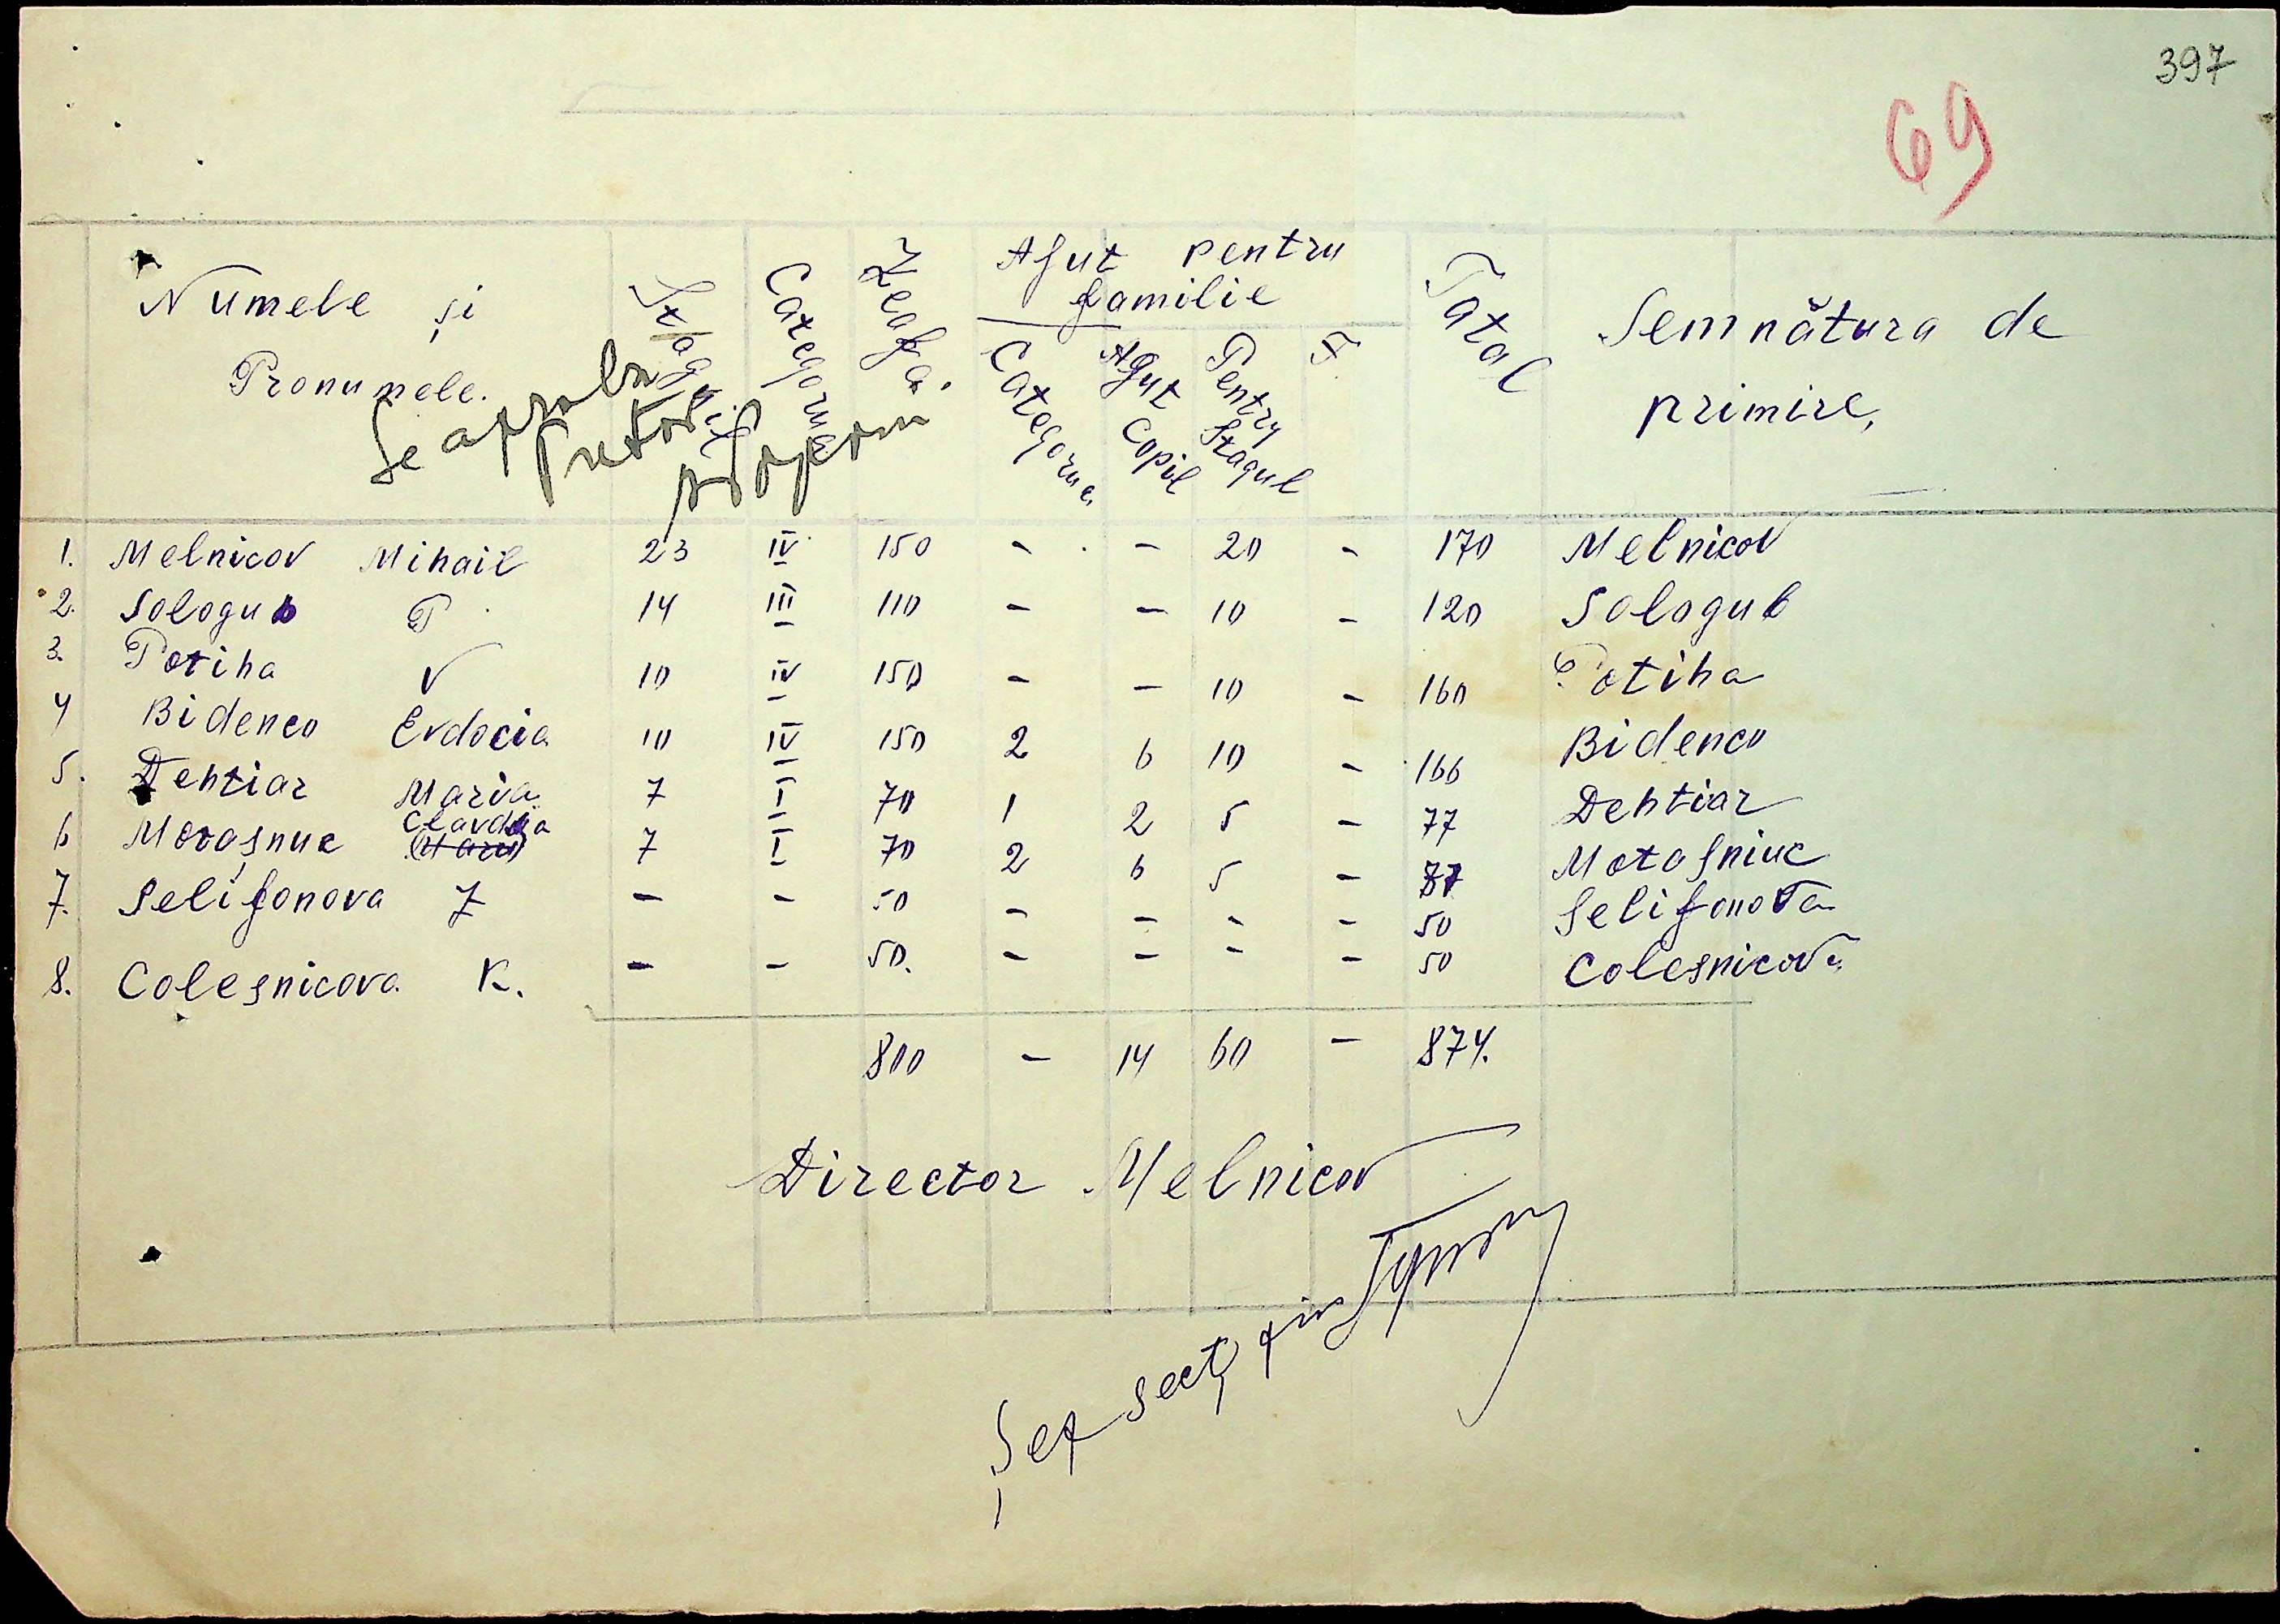 397
69
Numele și Pronumele. Categoria Leafa. Ajut pentru familie Total Semnătura de primire,
Categoria Agut Copil Pentru Stagul F
Se aproba
Pretor
1. Melnicov Mihail 23 IV 150 - - 20 - 170 Melnicov
2. Sologub P 14 III 110 - - 10 - 120 Sologub
3. Potiha V 10 IV 150 - - 10 - 160 Potiha
4 Bidenco Evdocia 10 IV 150 2 6 10 - 166 Bidenco
5. Dehtiar Maria 7 I 70 1 2 5 - 77 Dehtiar
6 Clavdia 7 I 70 2 6 5 -
7. Selifonova Z - - 50 - - - - 50 Selifonova
8. Colesnicova K. - - 50. - - - - 50 Colesnicova
800 - 14 60 - 874.
Director Melnicov
Șef secț fin